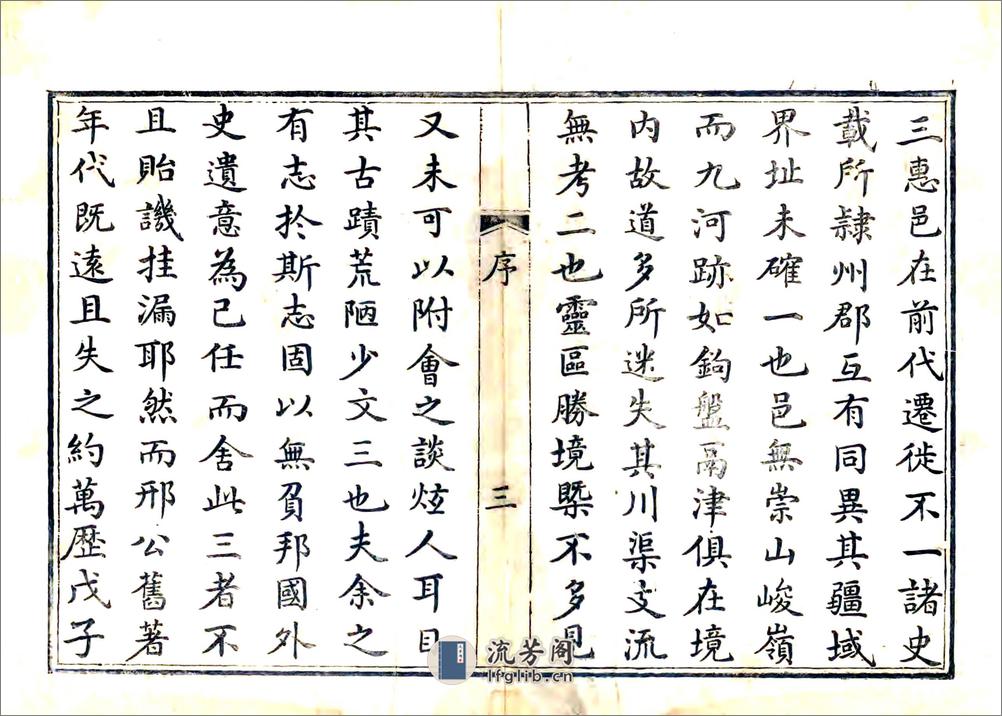 三惠邑在前代遷徙不一諸史
載所隷州郡互有同異其疆域
界址未確一也邑無崇山峻嶺
而九河跡如鉤盤鬲津俱在境
内故道多所迷失其川渠交流
無考二也靈區勝境槩不多見
序
三
又未可以附會之談炫人耳目
其古蹟荒陋少文三也夫余之
有志於斯志固以無負邦國外
史遺意為己任而舍此三者不
且貽譏挂漏耶然而邢公舊著
年代既遠且失之約萬歷戊子
流芳阁
lfglib.cn